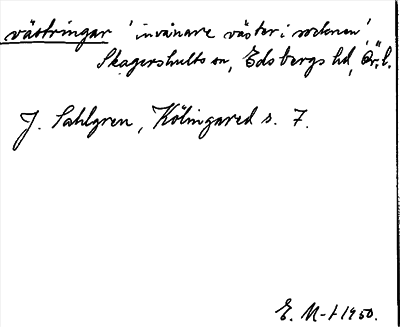 västringar 'invånare väster i socknen'
Skagershults sn, Edsbergs hd, Ör. l.
J. Sahlgren, Kölingared s. 7.
E. M-t 1950.